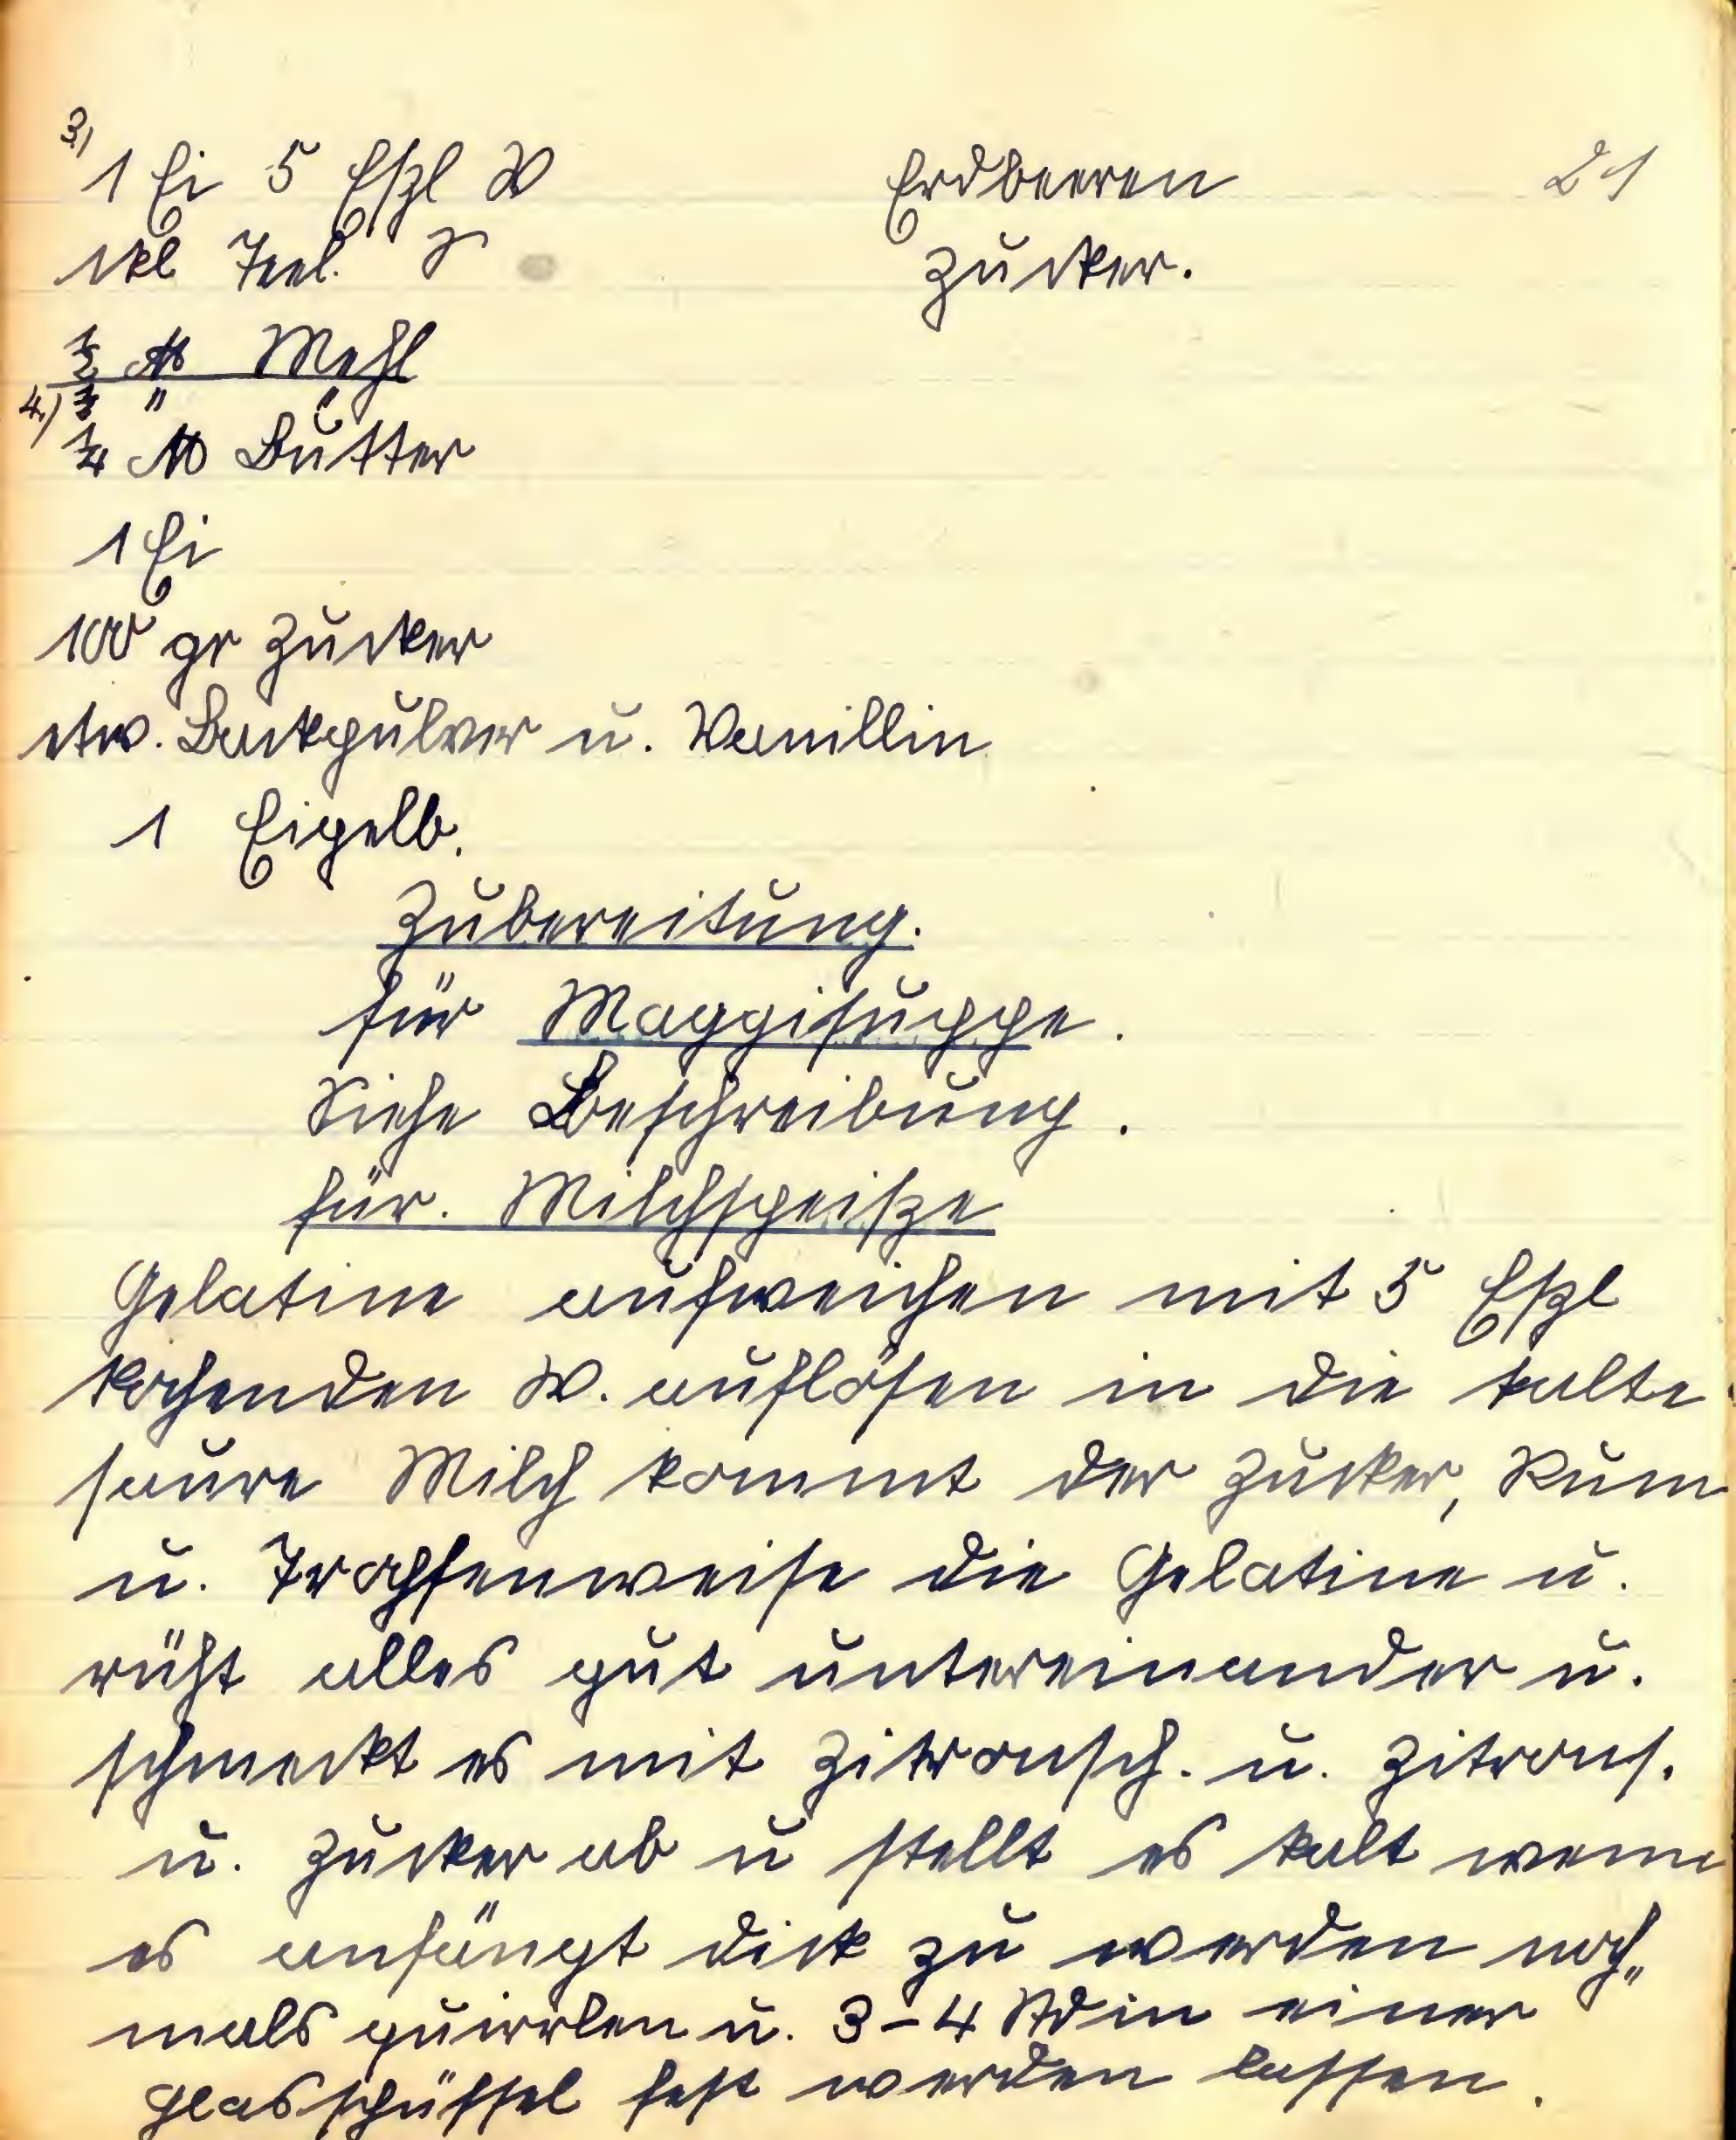 3.) 1 Ei 5 Eßl W
1 kl Teel. S
½ ℔ Mehl
4.) ½ " "
¼ ℔ Butter
1 Ei
100 gr Zucker
etw. Backpulver u. Vanillin
1 Eigelb.
Erdbeeren
Zucker.
21
Zubereitung.
für Maggisuppe.
Siehe Beschreibung.
für. Milchspeiße
Gelatine aufweichen mit 5 Eßl
kochenden W. auflösen in die kalte
saure Milch kommt der Zucker, Rum
u. Tropfenweise die Gelatine u.
rüht alles gut untereinander u.
schmeckt es mit Zitronsch. u. Zitrons.
u. Zucker ab u stellt es kalt wenn
es anfängt dick zu werden noch„
mals quirrlen u. 3-4 Std in einer
Glasschüssel fest werden lassen.